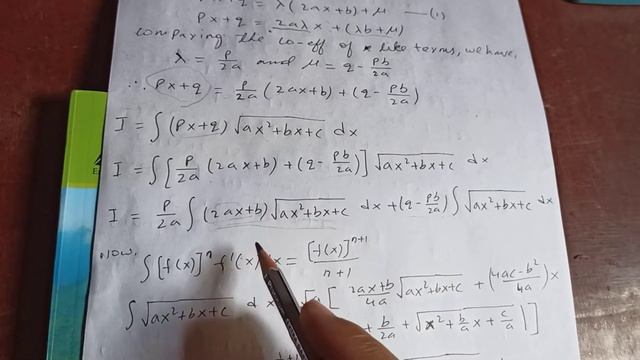 = λ(2ax+b) + μ —(1)
Px+q = 2aλx + (λb+μ)
Compaying the co-eff of x like terms, we have,
λ = P/2a and μ = q - Pb/2a
∴ Px+q = P/2a (2ax+b) + (q - Pb/2a)
I = ∫ (Px+q) √ax²+bx+c dx
I = ∫ [P/2a (2ax+b) + (q - Pb/2a)] √ax²+bx+c dx
I = P/2a ∫ (2ax+b) √ax²+bx+c dx + (q - Pb/2a) ∫ √ax²+bx+c dx
Now, ∫ [f(x)]ⁿ f'(x) x = [f(x)]ⁿ⁺¹/n+1
∫ √ax²+bx+c d [ 2ax+b/4a √ax²+bx+c + (4ac-b²/4a) x
+ b/2a + √x²+b/a x+c/a |]